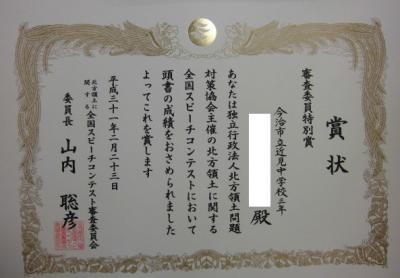 賞状
審査委員特別賞
今治市立近見中学校三年
殿
あなたは独立行政法人北方領土問題
対策協会主催の北方領土に関する
全国スピーチコンテストにおいて
頭書の成績をおさめられました
よってこれを賞します
平成三十一年二月二十三日
北方領土に関する全国スピーチコンテスト審査委員会
委員長 山内聡彦